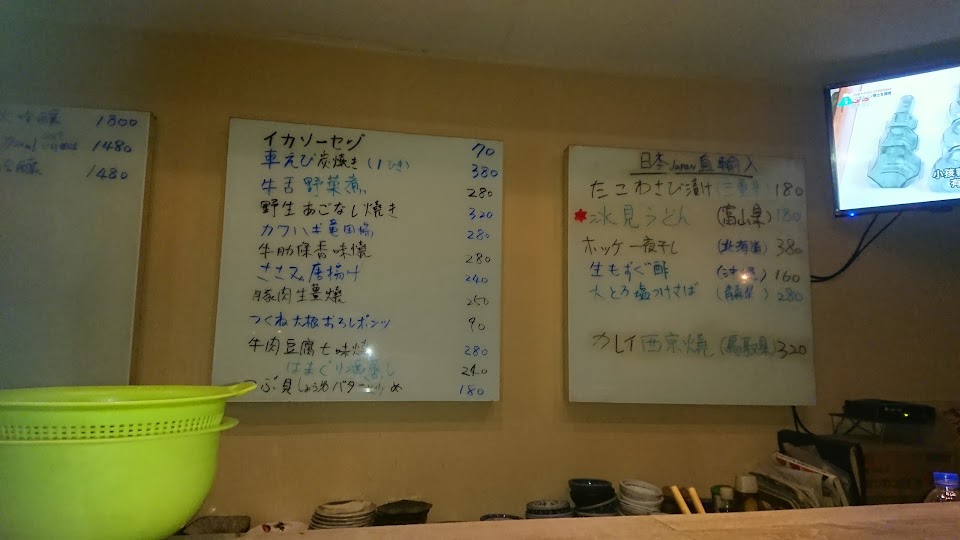 吟醸 1800
1480
吟醸 1480
イカソーセージ 70
車えび炭焼き(1ひき) 380
牛舌野菜煮 280
野生あごなし焼き 320
カワハギ竜田揚 280
牛肋條香味燒 280
ささみ唐揚げ 240
豚肉生薑燒 250
つくね大根おろしポンツ 90
牛肉豆腐七味燒 280
はまぐり酒蒸し 240
つぶ貝しょうゆバター炒め 180
日本Japan直輸入
たこわさび漬け(三重県) 180
氷見うどん (富山県) 180
ホッケ一夜干し (北海道) 380
生もずく酢 (沖縄) 160
大とろ塩つけさば (青森県) 280
カレイ西京燒(鳥取県) 320
小孩